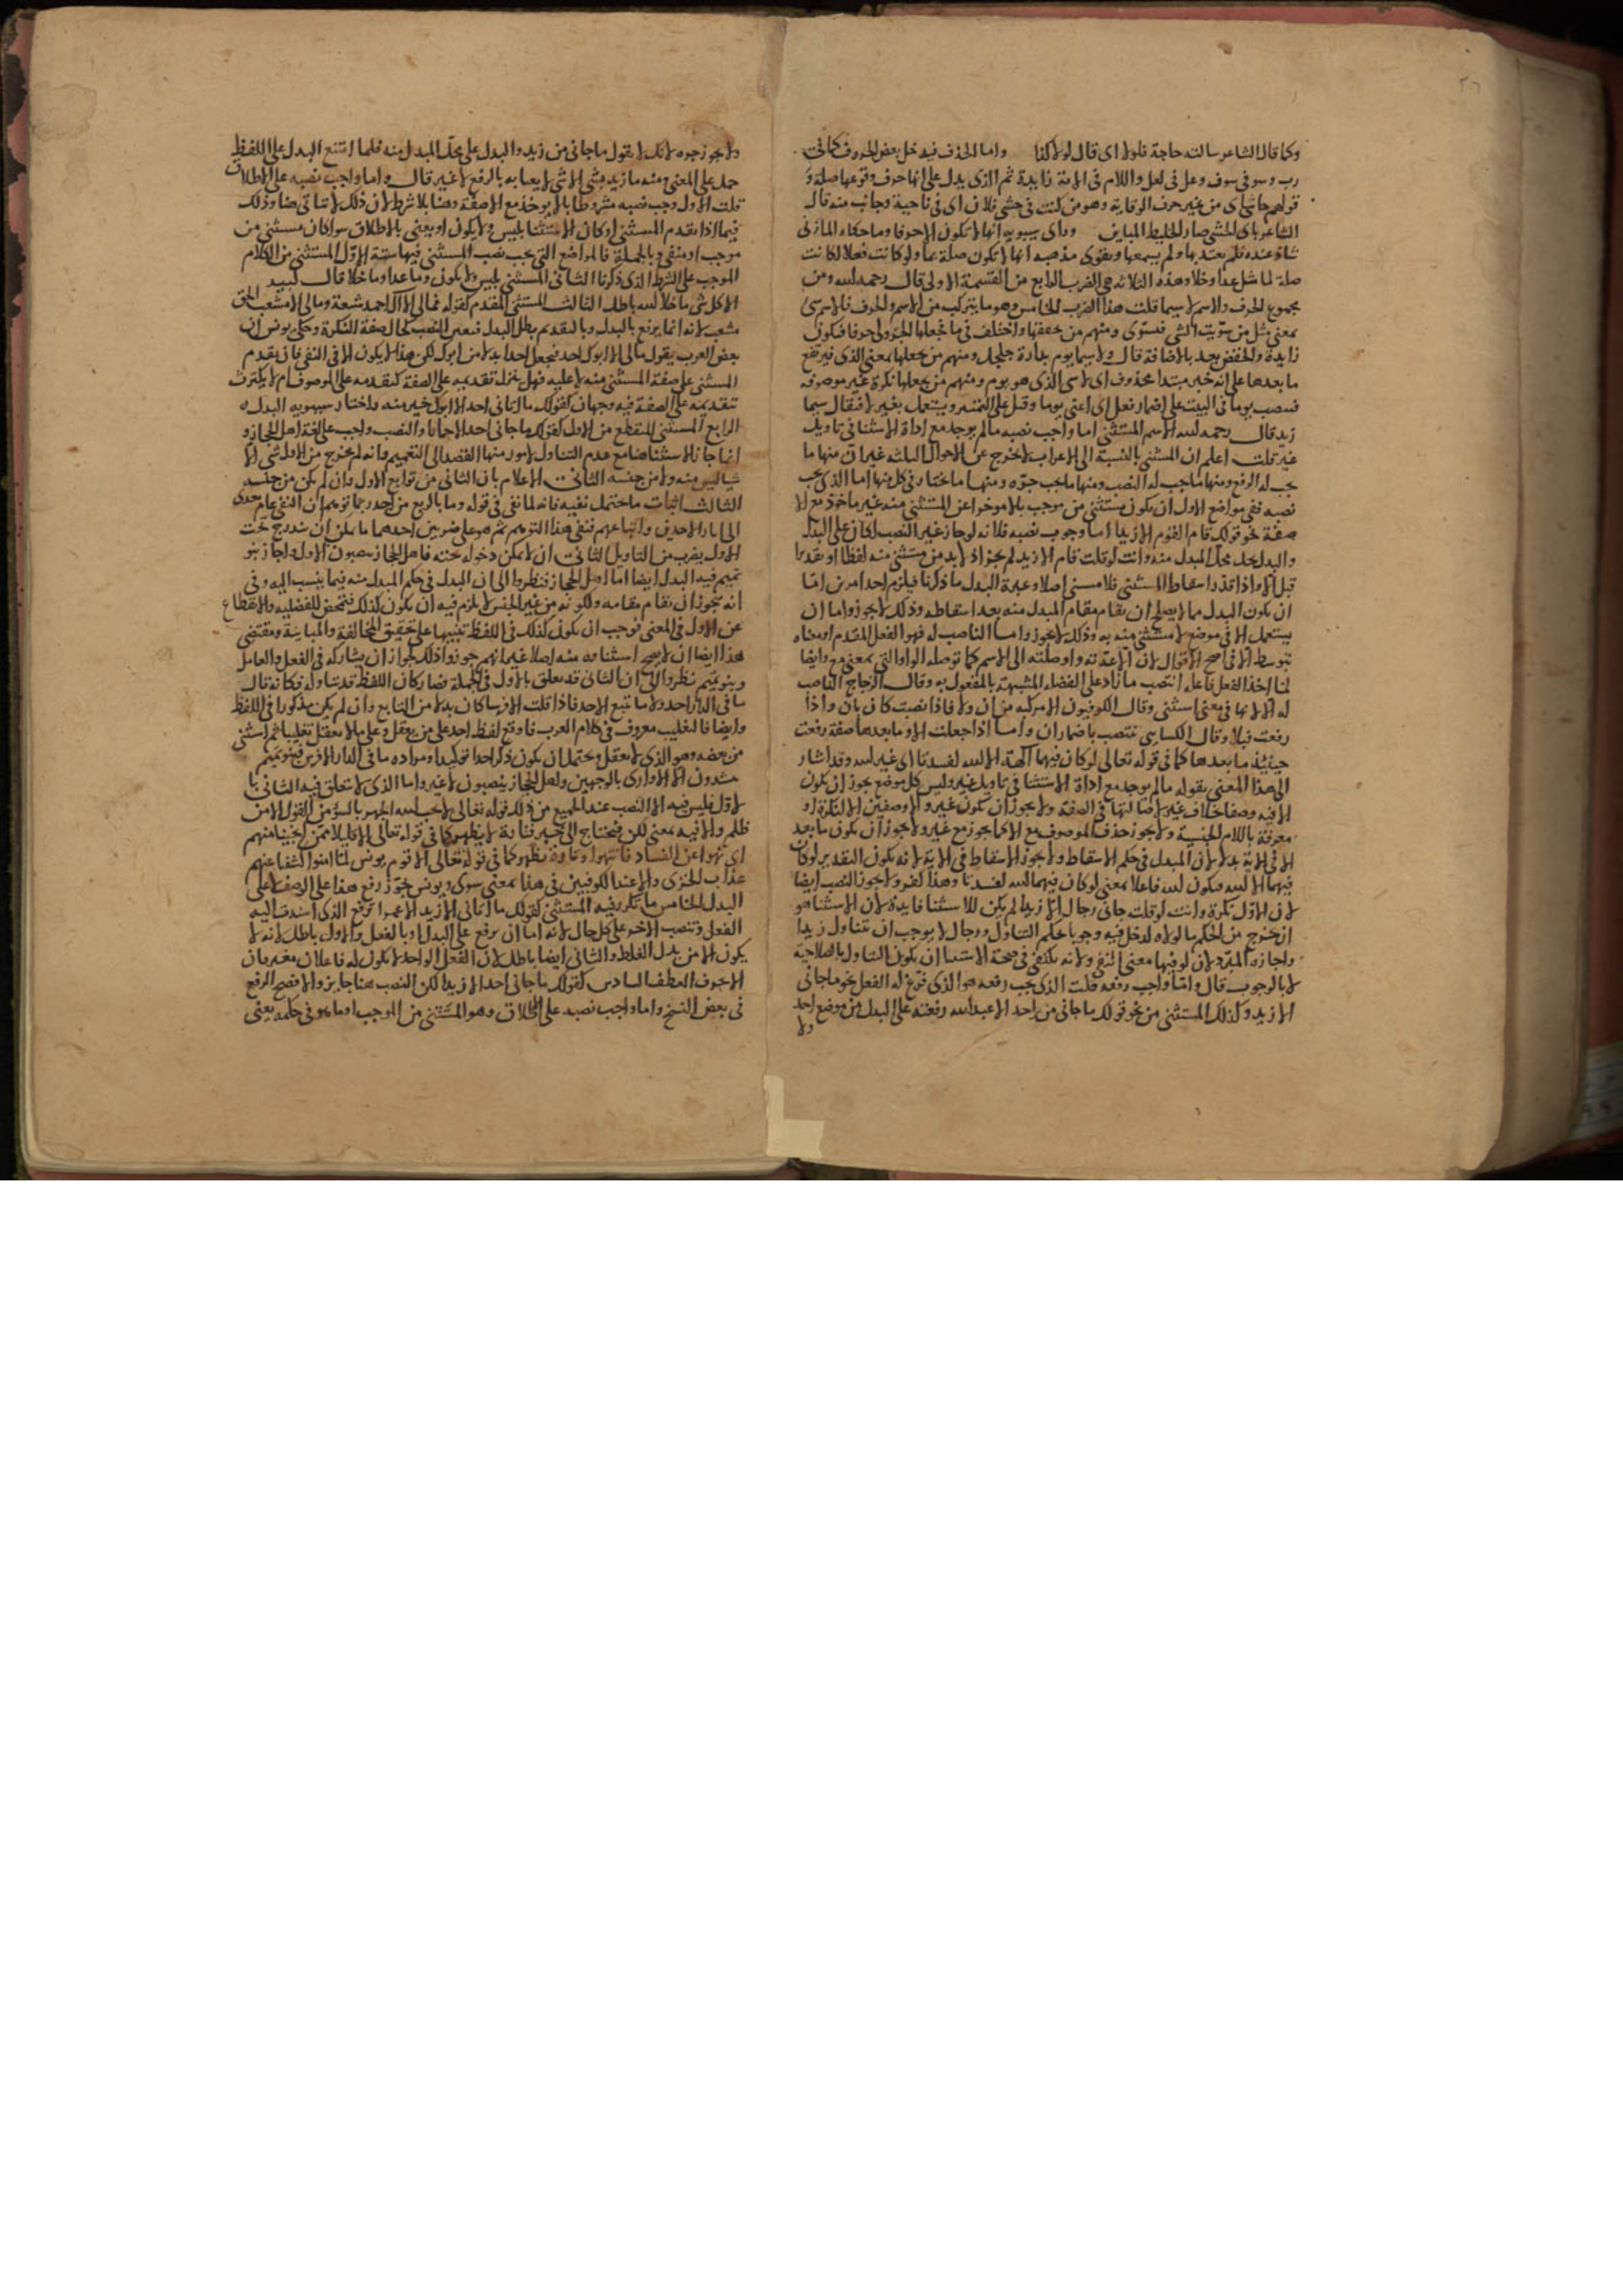 وكما قال الشاعر سالته حاجة فلولا اى قال لو لا كنا واما الحذف فيدخل بعض الحروف كما فى
رب وسو فى سوف وعل فى لعل واللام فى الاية زايدة ثم الذى يدل على انها حرف وقوعها صلة و
قولهم حاشاى من غير حرف الوقاية وهو من كنت فى حشى فلان اى فى ناحية وجانب منه قال
الشاعر باى الحشى صار الخليط المباين وراى سيبويه انها لا تكون الا حرفا وما حكاه المازنى
شاذ عنده فلم يعتد بها ولم يسمعها ويقوى مذهبه انها لا تكون صلة لما ولو كانت فعلا لكانت
صلة لما مثل عدا وخلا وهذه الثلاثة هى الضرب الرابع من القسمة الاولى قال رحمه الله ومن
مجموع الحرف والاسم لا سيما قلت هذا الضرب الخامس وهو ما يتركب من الاسم والحرف فالاسم سى
بمعنى مثل من سويت الشى فستوى ومنهم من يخففها واختلف فى ما فجعلها الجرولى حرفا فتكون
زايدة والخفض بعد بالاضافة قال ولا سيما يوم بدارة جلجل ومنهم من يجعلها بمعنى الذى فيرتفع
ما بعدها على انه خبر مبتدا محذوف اى لا سى الذى هو يوم ومنهم من يجعلها نكرة غير موصوفة
فنصب يوما فى البيت على اضمار فعل اى اعنى يوما وقيل على التمييز ويستعمل بغير لا فيقال سيما
زيد قال رحمه الله الاسم المستثنى اما واجب نصبه مالم يوجد مع اداة الاستثنا فى تاويل
غير قلت اعلم ان المستثنى بالنسبة الى الاعراب لا يخرج عن الاحوال الثلثه غير ان منها ما
يجب له الرفع ومنها ما يجب له النصب ومنها ما يجب جره ومنها ما يختار فى كل منها اما الذى يجب
نصبه ففى مواضع الاول ان يكون مستثنى من موجب بالا موخرا عن المستثنى منه غير ماخوذ مع الا
صفة نحو قولك قام القوم الا زيدا اما وجوب نصبه فلانه لو جاز غير النصب لكان على البدل
والبدل يحل محل المبدل منه وانت لو قلت قام الا زيد لم يجز اذ لا بد من مستثنى منه لفظا او تقديرا
قبل الا واذا قدر اسقاط المستثنى فلا مستثنى اصلا وعبرة البدل ما ذكرنا فيلزم احد امرين اما
ان يكون البدل مما لا يصلح ان يقام مقام المبدل منه بعد اسقاطه وذلك لا يجوز واما ان
يستعمل الا فى موضع لا مستثنى منه به وذلك لا يجوز واما الناصب له فهو الفعل المقدم او معناه
بتوسط الا فى اصح الاقوال لان الا عدته واوصلته الى الاسم كما توصله الواو التى بمعنى مع وايضا
لما اخذ الفعل فاعله انتصب ما زاد على الفضله المشبهة بالمفعول به وقال الزجاج الناصب
له الا لانها فى معنى استثنى وقال الكوفيون الا مركبه من ان ولا فاذا نصبت كان بان واذا
رفعت فبلا وقال الكسائى ينتصب باضمار ان واما اذا جعلت الا وما بعدها صفة رفعت
حينئذ ما بعدها كما فى قوله تعالى لو كان فيهما آلهة الا الله لفسدتا اى غير الله وقد اشار
الى هذا المعنى بقوله مالم يوجد مع اداة الاستثنا فى تاويل غير وليس كل موضع يجوز ان يكون
الا فيه وصفا خلاف غير لاصالتها فى الصفة ولا يجوز ان يكون غير والا وصفين الا للنكرة او
معرفة باللام الجنسية ولا يجوز حذف الموصوف مع الا كما يجوز مع غير ولا يجوز ان يكون ما بعد
الا فى الاية بدلا لان المبدل فى حكم الاسقاط ولا يجوز الاسقاط فى الاية لانه يكون التقدير لو كان
فيهما الا الله فيكون الله فاعلا بمعنى لو كان فيهما الله لفسدتا وهذا كفر ولا يجوز النصب ايضا
لان الاول نكرة وانت لو قلت جانى رجال الا زيدا لم يكن للاستثنا فايدة لان الاستثنا هو
ان يخرج من الحكم ما لولاه لدخل فيه وجوبا بحكم التناول ورجال لا يوجب ان يتناول زيدا
واجازه المبرد لان لو فيها معنى النفى ولانه يكتفى فى صحة الاستثنا ان يكون التناول بالصلاحية
لا بالوجوب قال واما واجب رفعه قلت الذى يجب رفعه هو الذى فرغ له الفعل نحو ما جانى
الا زيد وكذلك المستثنى من نحو قولك ما جانى من احد الا عبد الله رفعته على البدل من موضع احد
ولا
ولا يجوز جره لانك لا تقول ما جانى من زيد والبدل على محل المبدل منه فلما امتنع البدل على اللفظ
حمل على المعنى ومنه ما زيد بشى الا شى لا يعبا به بالرفع لا غير قال واما واجب نصبه على الاطلاق
قلت الاول وجب نصبه مشروطا بالا يوخذ مع الا صفة وهنا بلا شرط لان ذلك لا يتاتى هنا وذلك
فيما اذا تقدم المستثنى او كان الاستثنا بليس ولا يكون او يعنى بالاطلاق سوا كان مستثنى من
موجب او منفى وبالجملة فالمواضع التى يجب نصب المستثنى فيها ستة الاول المستثنى من الكلام
الموجب على الشرط الذى ذكرنا الثانى المستثنى بليس ولا يكون وما عدا وما خلا قال لبيد
الا كل شى ما خلا الله باطل الثالث المستثنى المقدم كقوله فما لى الا آل احمد شيعة وما لى الا مشعب الحق
مشعب لانه انما يرفع بالبدل وبالتقديم بطل البدل فتعين النصب كحال صفة النكرة وحكى يونس ان
بعض العرب يقول ما لى الا ابوك احد فيجعل احدا بدلا من ابوك لكن هذا لا يكون الا فى النفى فان تقدم
المستثنى على صفة المستثنى منه لا عليه فهل ينزل تقديمه على الصفة كتقدمه على الموصوف ام لا يكترث
بتقديمه على الصفة فيه وجهان كقولك ما اتانى احد الا ابوك خير منه واختار سيبويه البدل
الرابع المستثنى المنقطع من الاول كقولك ما جانى احد الا حمارا والنصب واجب على لغة اهل الحجاز و
انما جاز الاستثنا هنا مع عدم التناول لامور منها القصد الى التعميم وانه لم يخرج من الاول شى الا
شيا ليس منه ولا من جنسه الثانى الاعلام بان الثانى من توابع الاول وان لم يكن من جنسه
الثالث اثبات ما يحتمل نفيه فانه لما نفى فى قوله وما بالربع من احد ربما توهم ان النفى عام تعدى
الى اثار الاحدين واتباعهم فنفى هذا التوهم ثم هو على ضربين احدهما ما يمكن ان يندرج تحت
الاول بضرب من التاويل الثانى ان لا يمكن دخوله تحته فاهل الحجاز ينصبون الاول واجاز بنو
تميم فيه البدل ايضا اما اهل الحجاز فنظروا الى ان البدل فى حكم المبدل منه فيما ينسب اليه وفى
انه يجوز ان يقام مقامه ولكونه من غير الجنس لا يلزم فيه ان يكون كذلك فتمحض للفضلية والانقطاع
عن الاول فى المعنى فوجب ان يكون كذلك فى اللفظ تنبيها على تحقيق المخالفة والمباينة ومقتضى
هذا ايضا ان لا يصح استثناوه منه اصلا غير انهم جوزوا ذلك لجواز ان يشاركه فى الفعل والعامل
وبنو تميم نظروا الى ان الثانى قد يعلق بالاول فى الجملة فصار كان اللفظ قد تناوله فكانه قال
ما فى الدار احد ولا ما تبع الاحد فاذا قلت الا فرسا كان بدلا من التابع وان لم يكن مذكورا فى اللفظ
وايضا فالتغليب معروف فى كلام العرب فاوقع لفظ احد على من يعقل وعلى ما لا يعقل تغليبا ثم استثنى
من بعضه وهو الذى لا يعقل ويحتمل ان يكون ذكر احدا توكيدا ومراده ما فى الدار الا فرس فبنو تميم
ينشدون الا الاوارى بالوجهين واهل الحجاز ينصبون لا غير واما الذى لا يتعلق فيه الثانى با
لاول فليس فيه الا النصب عند الجميع من ذلك قوله تعالى لا يحب الله الجهر بالسو من القول الا من
ظلم والا فيه بمعنى لكن فتحتاج الى خبر فتارة لا يظهر كما فى قوله تعالى الا قليلا ممن انجينا منهم
اى نهوا عن الفساد فانتهوا وتارة يظهر كما فى قوله تعالى الا قوم يونس لما امنوا كشفنا عنهم
عذاب الخزى والا عند الكوفيين فى هذا بمعنى سوى ويونس جوز رفع هذا على الوصف لا على
البدل الخامس ما تكرر فيه المستثنى كقولك ما اتانى الا زيد الا عمرا ترفع الذى اسندت اليه
الفعل وتنصب الاخر على كل حال لانه اما ان يرفع على البدل او بالفعل والاول باطل لانه لا
يكون الا من بدل الغلط والثانى ايضا باطل لان الفعل الواحد لا يكون له فاعلان مغيرمان
الا بحرف العطف السادس كقولك ما جانى احد الا زيدا لكن النصب هنا جايز والافصح الرفع
فى بعض النسخ واما واجب نصبه على الاطلاق وهو المستثنى من الموجب او ما هو فى حكمه يعنى